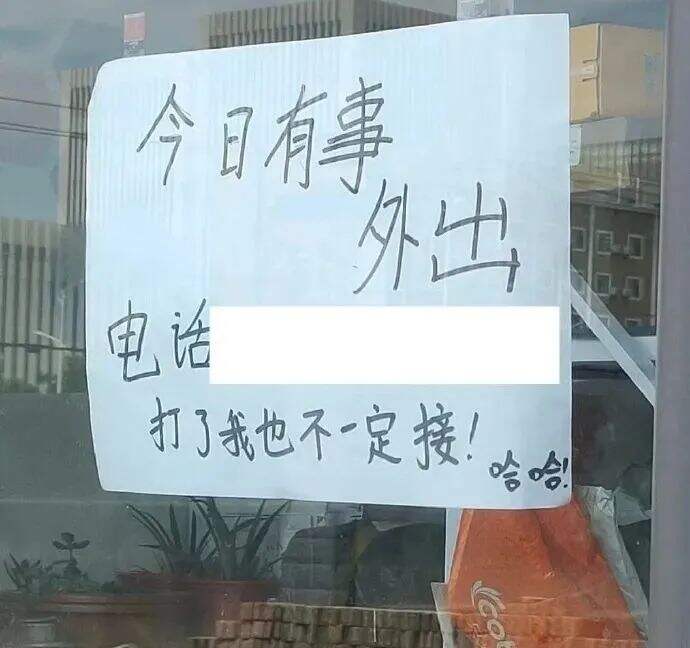 今日有事
外出
电话
打了我也不一定接！
哈哈！